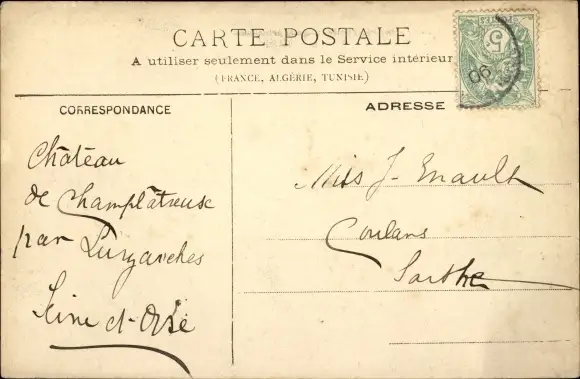 CARTE POSTALE
A utiliser seulement dans le Service intérieur
(FRANCE, ALGÉRIE, TUNISIE)
CORRESPONDANCE
ADRESSE
Château
de Champlâtreuse
par Luzarches
Seine et Oise
Miss J. Enault
Coulans
Sarthe
POSTES
5
06